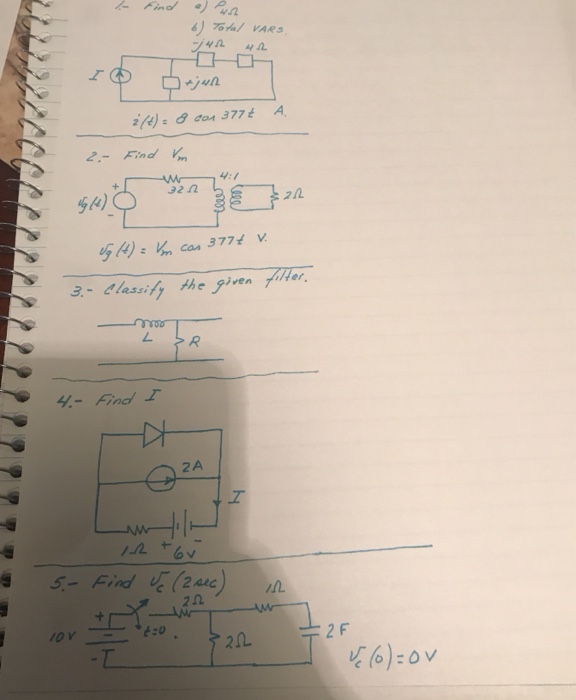 1.- Find a) P4Ω
b) Total VARS.
-j4Ω 4Ω
I +j4Ω
i(t) = 8 cos 377t A.
2.- Find Vm
4:1
+ 32Ω
vg(t) 2Ω
-
vg(t) = Vm cos 377t V.
3.- Classify the given filter.
L R
4.- Find I
2A
I
1Ω + 6V -
5.- Find vc (2 sec)
2Ω 1Ω
+
10V t=0 2Ω 2F
-
vc(0) = 0V